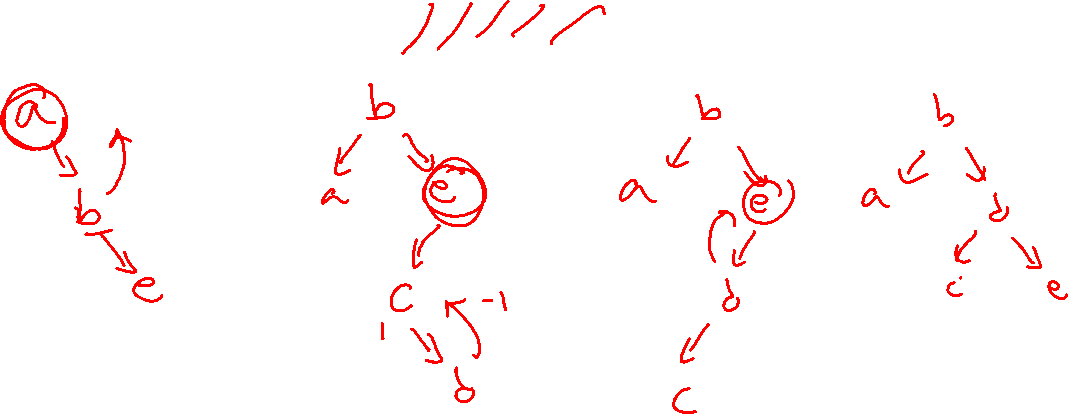 a
b
e
b
a e
c -1
1
d
b
a e
d
c
b
a
d
c e